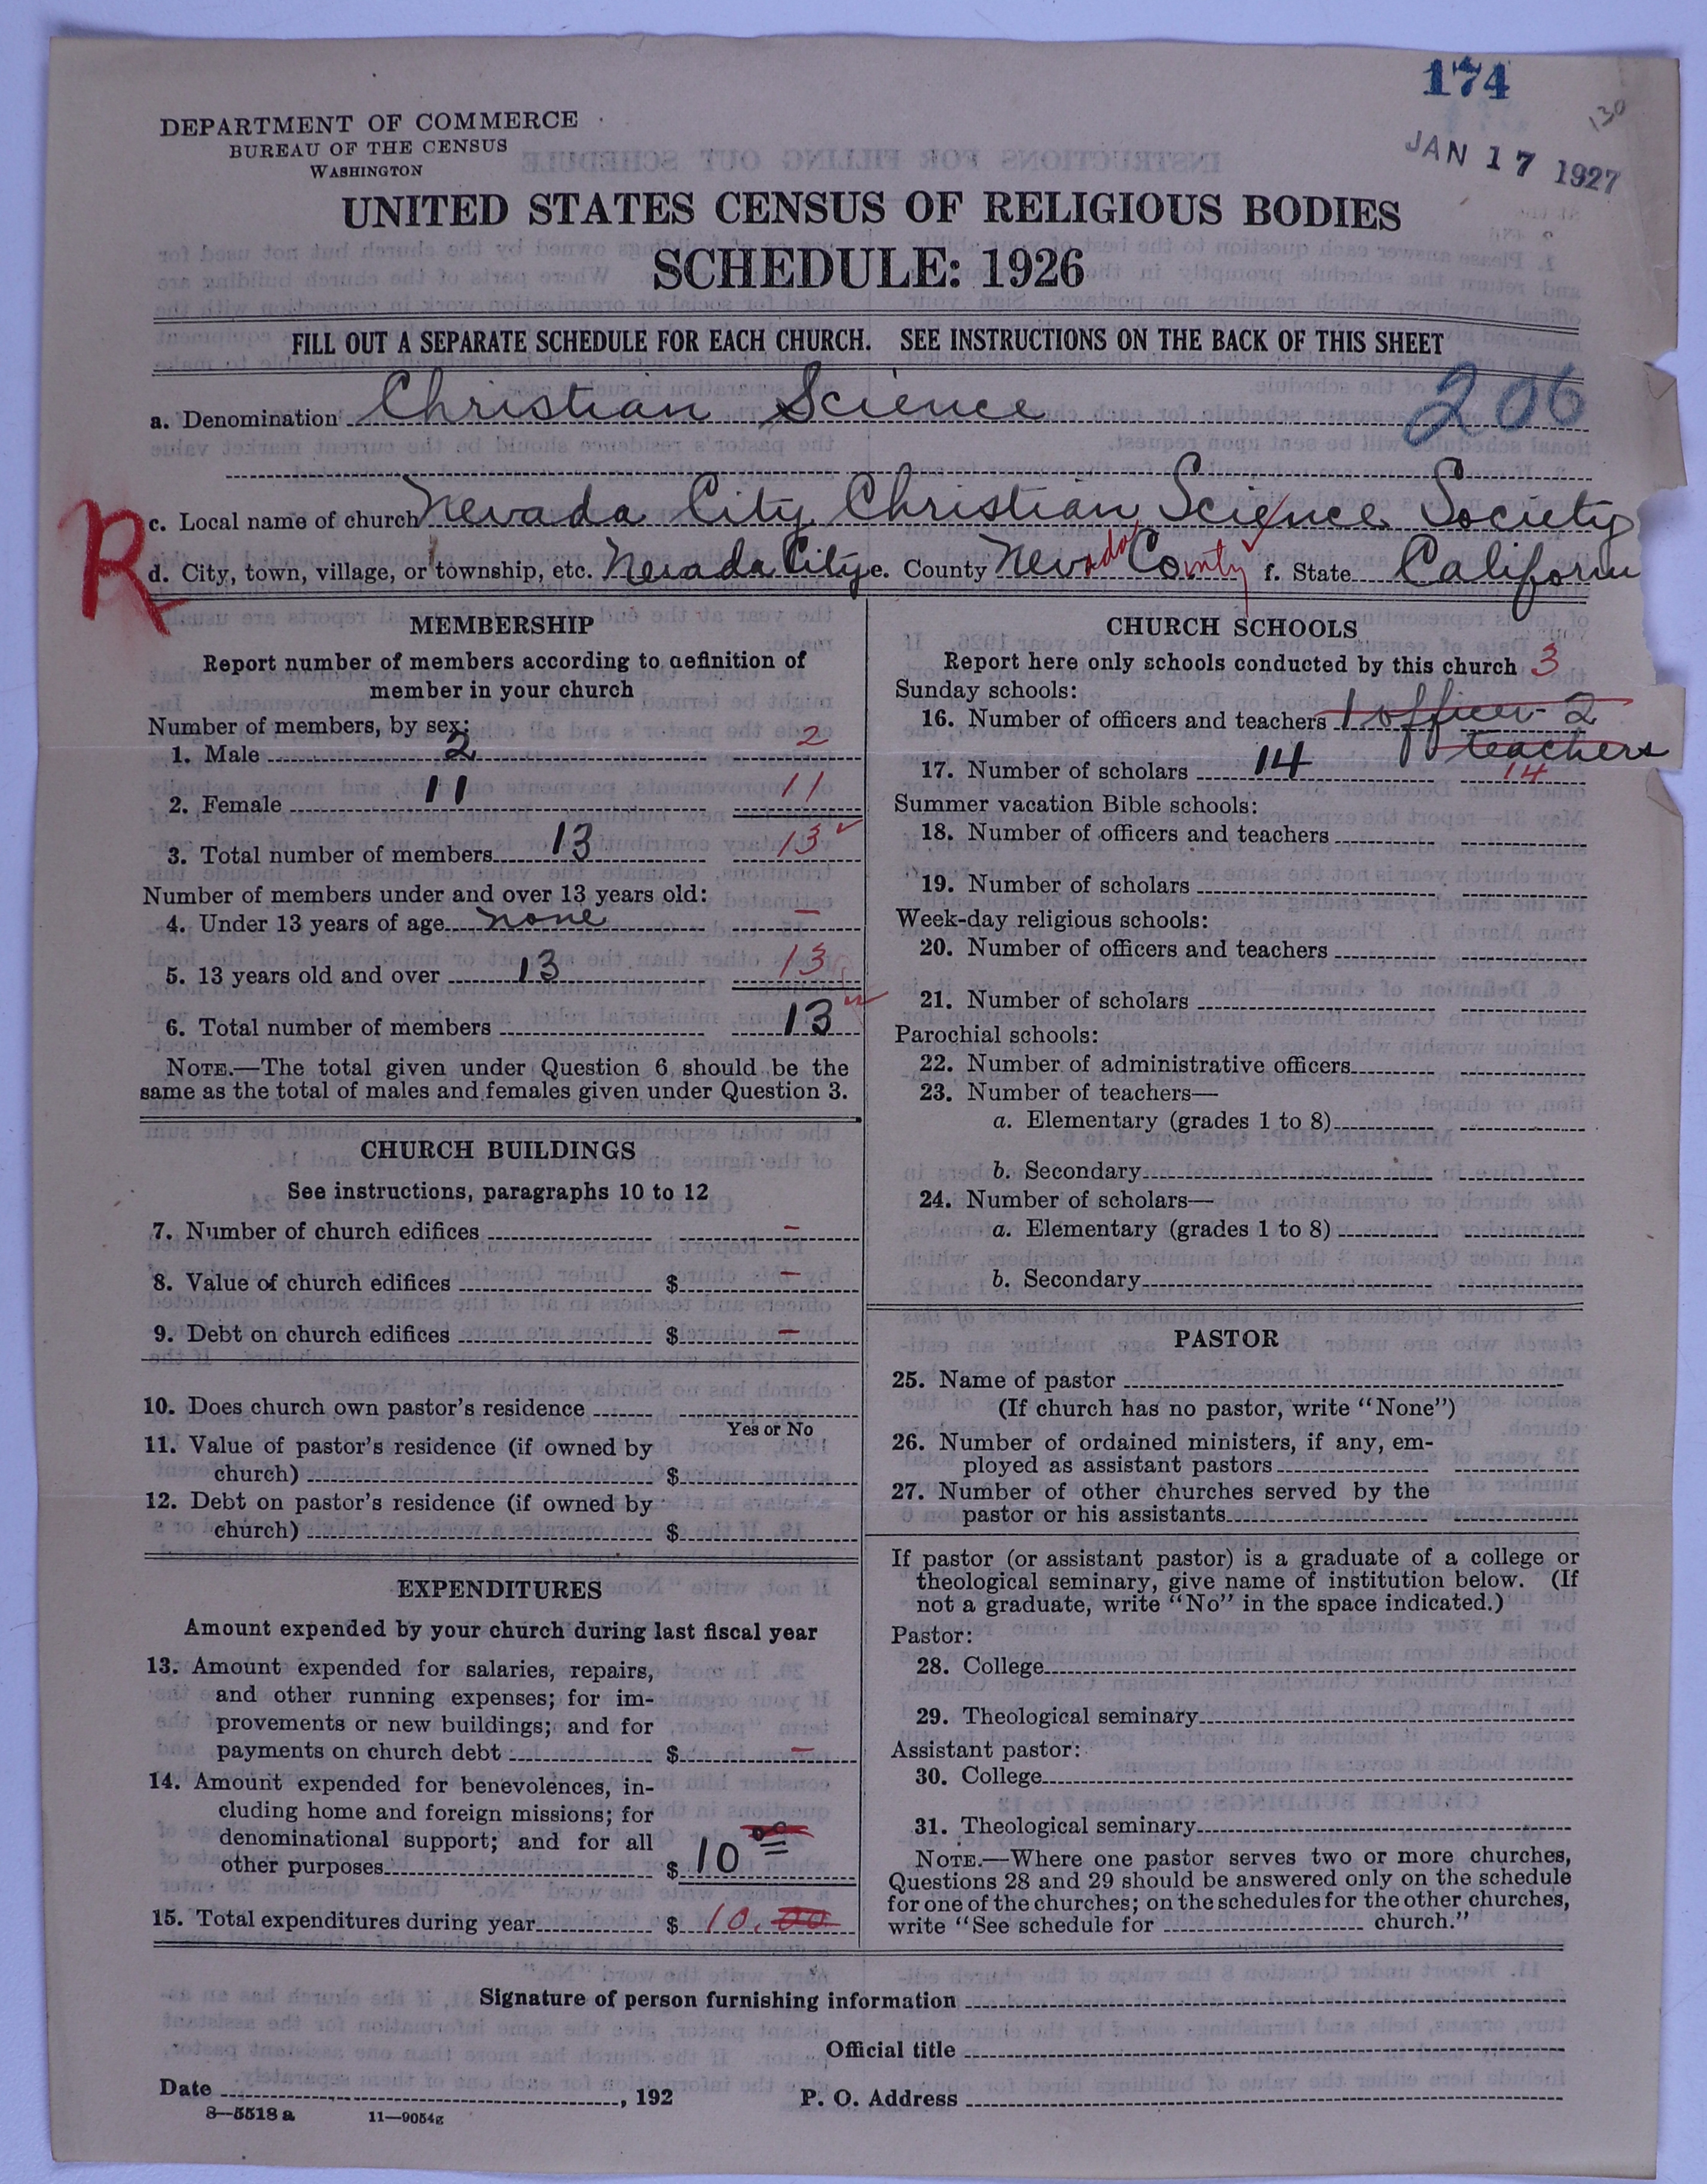 174
130
JAN 17 1927
DEPARTMENT OF COMMERCE
BUREAU OF THE CENSUS
WASHINGTON
UNITED STATES CENSUS OF RELIGIOUS BODIES
SCHEDULE: 1926
FILL OUT A SEPARATE SCHEDULE FOR EACH CHURCH. SEE INSTRUCTIONS ON THE BACK OF THIS SHEET
206
a. Denomination Christian Science
R
c. Local name of church Nevada City Christian Science Society
d. City, town, village, or township, etc. Nevada City e. County Nevada County f. State California
MEMBERSHIP
Report number of members according to definition of
member in your church
Number of members, by sex:
1. Male 2 2
2. Female 11 11
3. Total number of members 13 13
Number of members under and over 13 years old:
4. Under 13 years of age none –
5. 13 years old and over 13 13
6. Total number of members 13
NOTE.—The total given under Question 6 should be the
same as the total of males and females given under Question 3.
CHURCH BUILDINGS
See instructions, paragraphs 10 to 12
7. Number of church edifices –
8. Value of church edifices $ –
9. Debt on church edifices $ –
10. Does church own pastor's residence
Yes or No
11. Value of pastor's residence (if owned by
church) $
12. Debt on pastor's residence (if owned by
church) $
EXPENDITURES
Amount expended by your church during last fiscal year
13. Amount expended for salaries, repairs,
and other running expenses; for im-
provements or new buildings; and for
payments on church debt $ –
14. Amount expended for benevolences, in-
cluding home and foreign missions; for
denominational support; and for all
other purposes $ 10 00
15. Total expenditures during year $ 10.00
CHURCH SCHOOLS
Report here only schools conducted by this church 3
Sunday schools:
16. Number of officers and teachers 1 officer - 2
teachers
17. Number of scholars 14 14
Summer vacation Bible schools:
18. Number of officers and teachers
19. Number of scholars
Week-day religious schools:
20. Number of officers and teachers
21. Number of scholars
Parochial schools:
22. Number of administrative officers
23. Number of teachers—
a. Elementary (grades 1 to 8)
b. Secondary
24. Number of scholars—
a. Elementary (grades 1 to 8)
b. Secondary
PASTOR
25. Name of pastor
(If church has no pastor, write "None")
26. Number of ordained ministers, if any, em-
ployed as assistant pastors
27. Number of other churches served by the
pastor or his assistants
If pastor (or assistant pastor) is a graduate of a college or
theological seminary, give name of institution below. (If
not a graduate, write "No" in the space indicated.)
Pastor:
28. College
29. Theological seminary
Assistant pastor:
30. College
31. Theological seminary
NOTE.—Where one pastor serves two or more churches,
Questions 28 and 29 should be answered only on the schedule
for one of the churches; on the schedules for the other churches,
write "See schedule for church."
Signature of person furnishing information
Official title
Date , 192 P. O. Address
8—5518 a 11—9054g